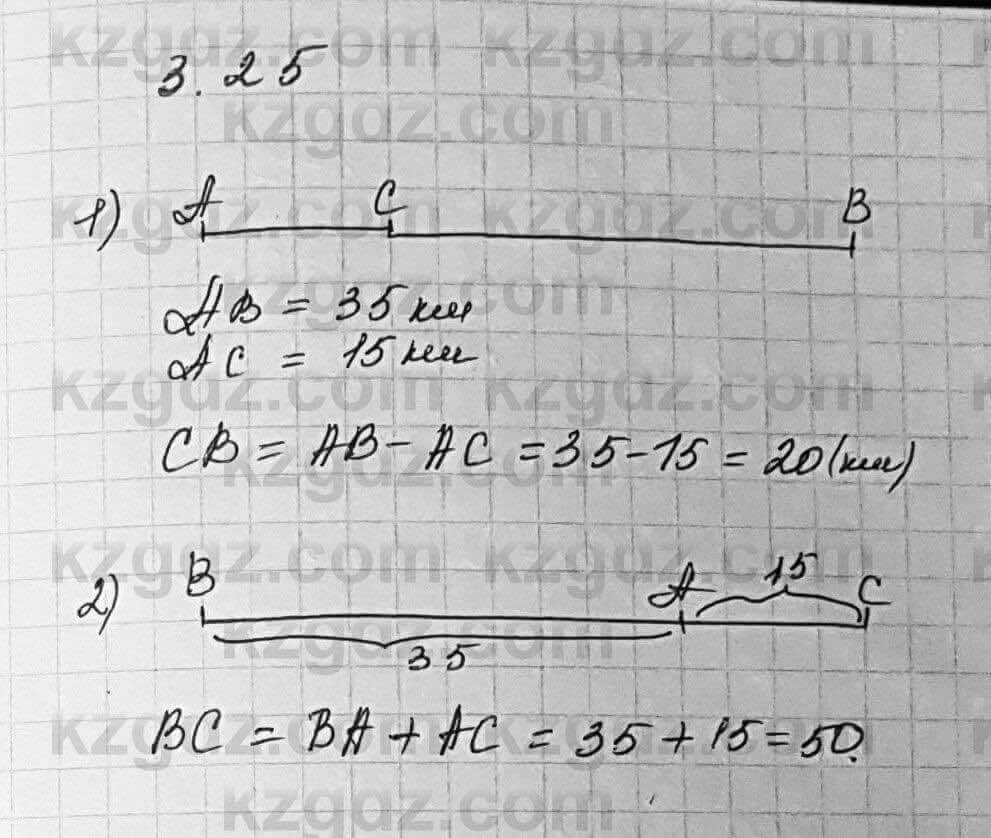 3.25
1) A C B
AB = 35 км
AC = 15 км
CB = AB - AC = 35 - 15 = 20 (км)
2) B A 15 C
35
BC = BA + AC = 35 + 15 = 50.
kzgdz.com